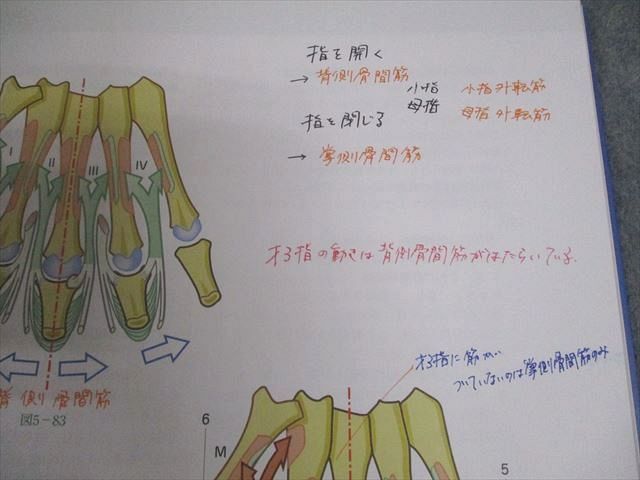 指を開く
→ 背側骨間筋
小指 小指外転筋
母指 母指外転筋
指を閉じる
→ 掌側骨間筋
I II III IV
オ3指の動きは背側骨間筋がはたらいている.
背側骨間筋
図5-83
オ3指に筋が
ついていないのは掌側骨間筋のみ
6
M
5